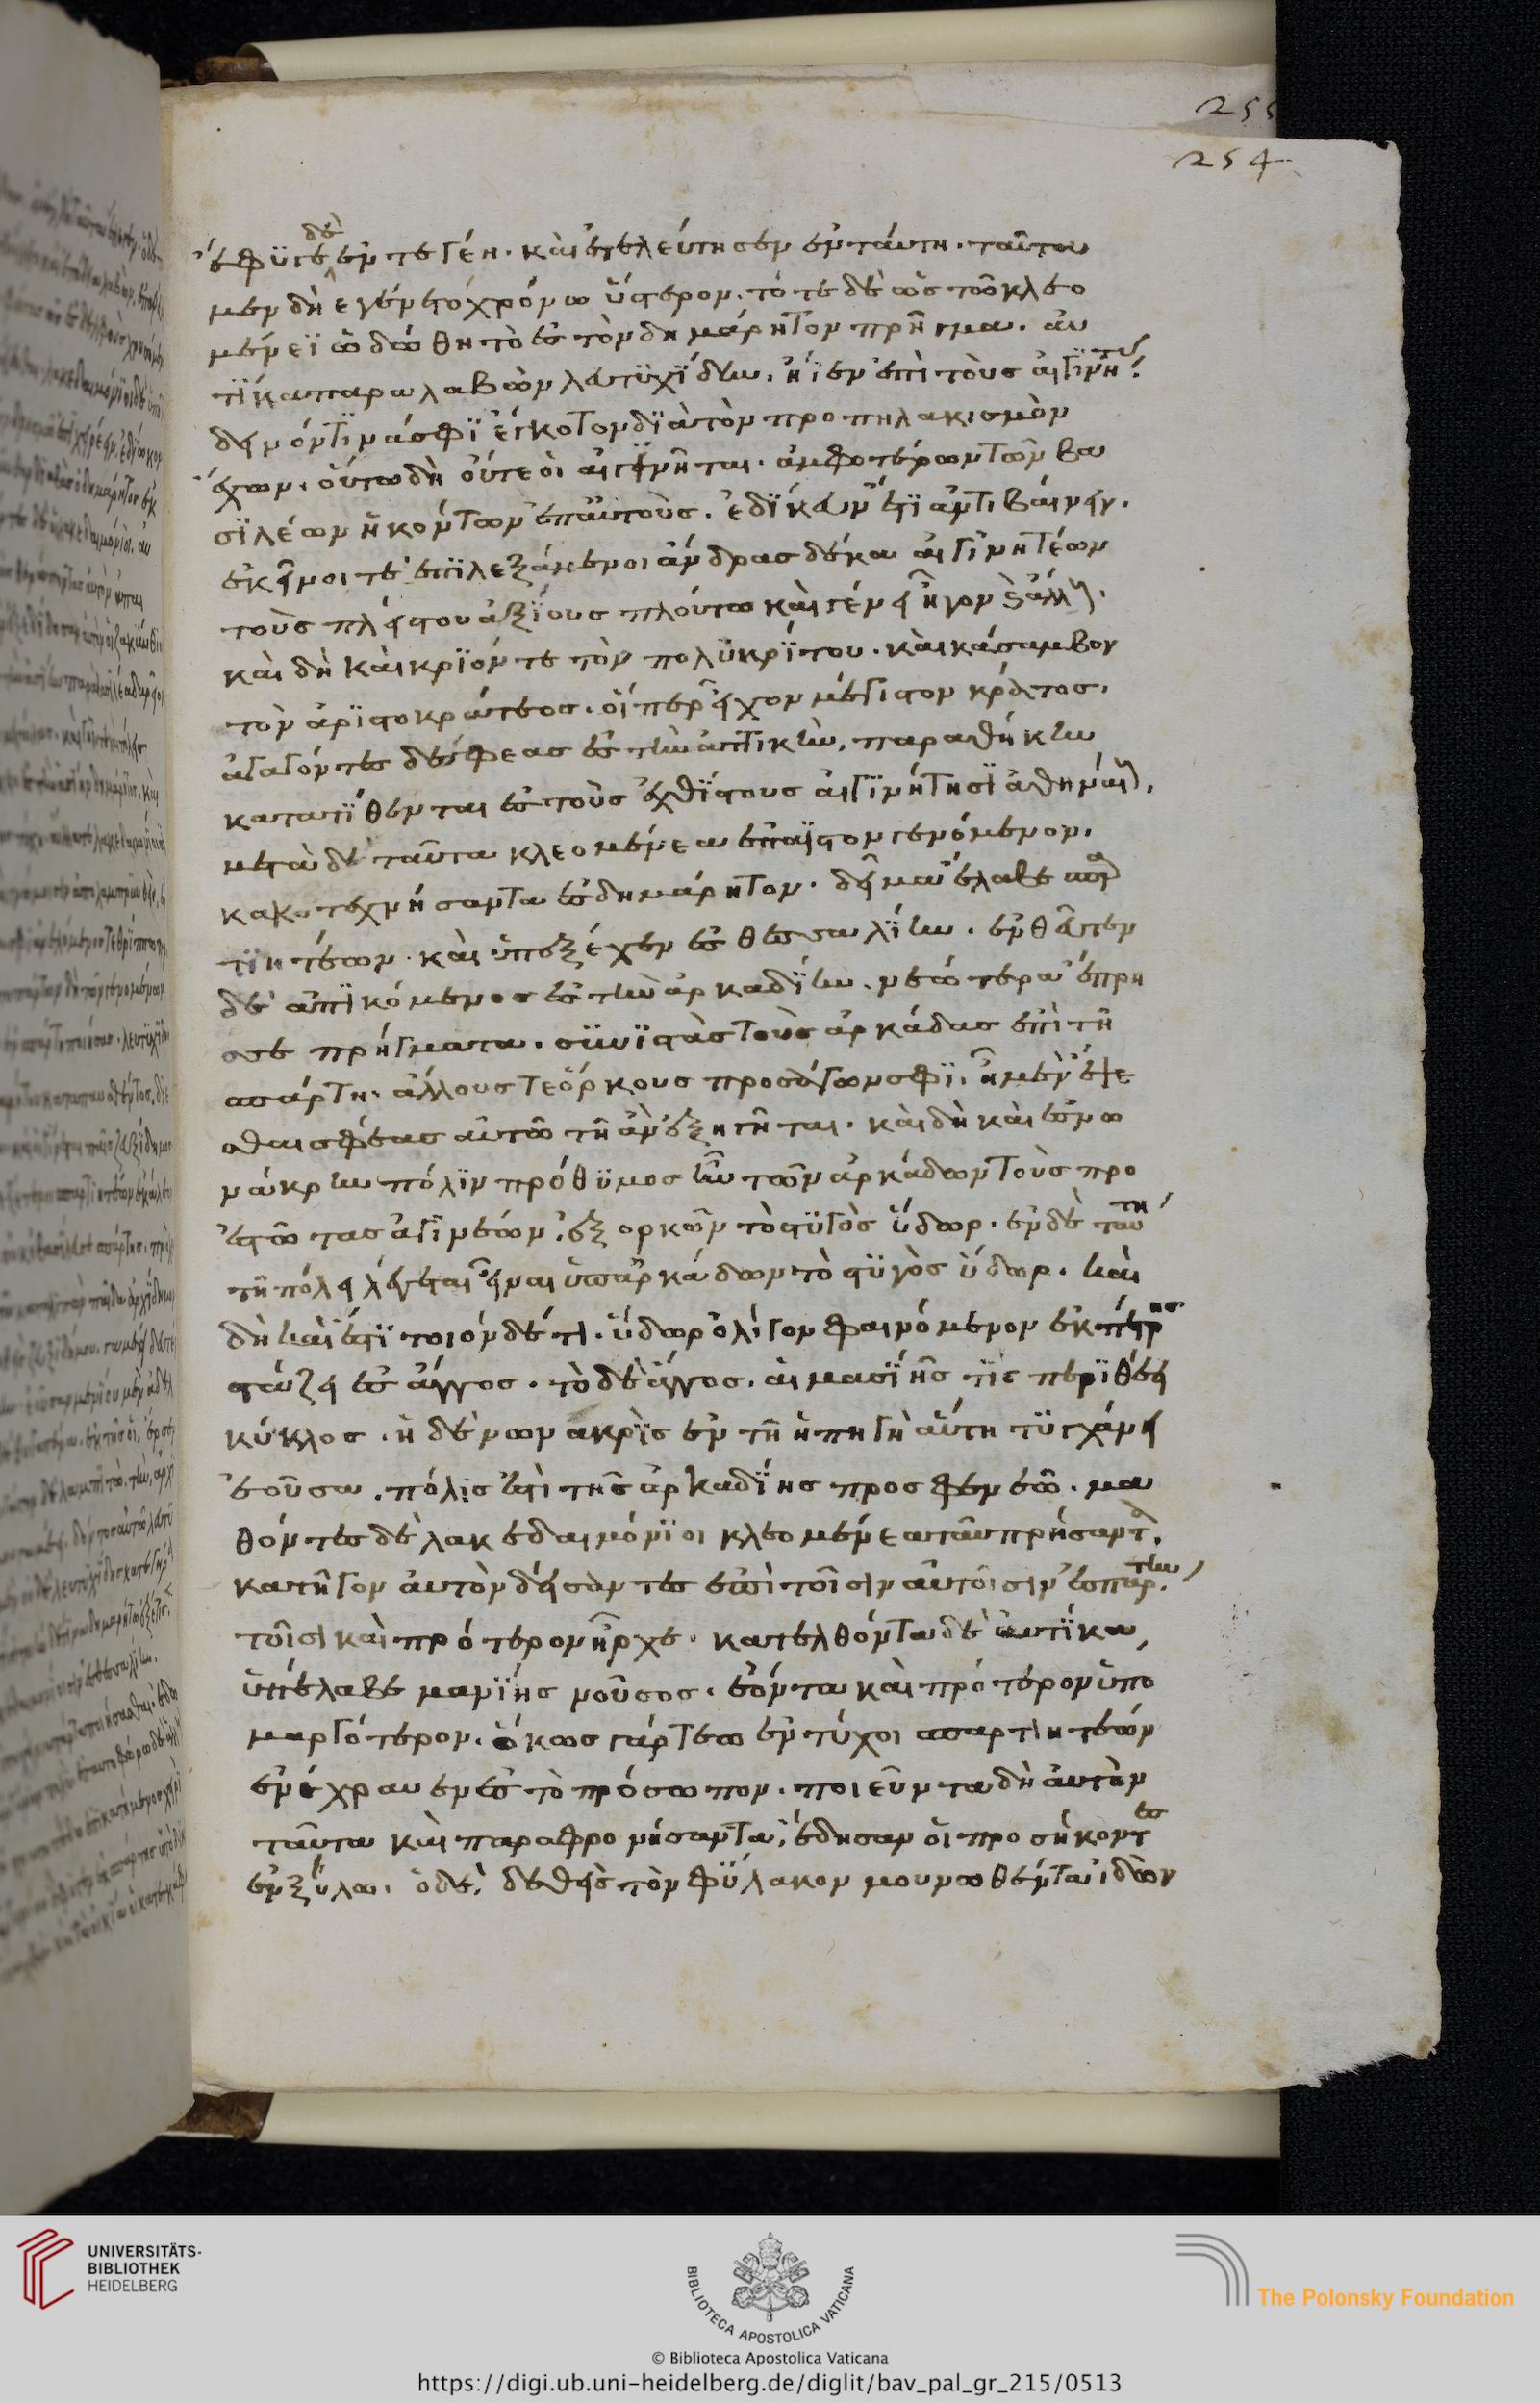 255
254
ἔφϋγε δὲ ἐν τεγέη· καὶ ἐτελεύτησεν ἐν ταύτη· ταῦτα
μεν δὴ ἐγένετο χρόνω ὕστερον. τότε δὲ ὡς τῶ κλεο
μένεϊ ὡδώθη τὸ ἐς τὸν δημάρητον πρῆγμα. αὐ
τΐκα παραλαβὼν λευτϋχΐδην, ἤϊεν ἐπὶ τοὺς αἰγϊνήτας.
δεινόν τινά σφϊ ἔγκοτον δϊὰ τὸν προπηλακισμὸν
ἔχων. οὕτω δὴ οὔτε ὁι αἰγϊνῆται. ἀμφοτέρων τῶν βα
σϊλέων ἡκόντων ἐπ αὐτοὺς. ἐδϊκάιευν ἔτϊ ἀντιβαίνειν.
ἐκεῖνοι τε ἐπϊλεξάμενοι ἄνδρας δέκα αἰγινητέων
τοὺς πλείστου ἀξΐους πλούτω καὶ γένει ἦγον καὶ ἄλλους.
καὶ δὴ καὶ κρϊόν τε τὸν πολϋκρΐτου. καὶ κάσαμβον
τὸν ἀρϊστοκράτεος. οἵπερ εἶχον μέγιστον κράτος.
ἀγαγόντες δέ σφεας ἐς τὴν ἀττικὴν, παραθήκην
κατατΐθενται ἐς τοὺς ἐχθΐστους αἰγϊνήτησϊ ἀθηναίους.
μετὰ δὲ ταῦτα κλεομένεα ἐπάϊστον γενόμενον.
κακοτεχνήσαντα ἐς δημάρητον. δεῖμα ἔλαβε σπαρ
τϊητέων. καὶ ὑπεξέχεν ἐς θεσσαλΐην. ἐνθεῦτεν
δὲ ἀπϊκόμενος ἐς τὴν ἀρκαδΐην. νεώτερα ἔπρη
σσε πρήγματα. σϋνϊστὰς τοὺς ἀρκάδας ἐπὶ τῆ
σπάρτη. ἄλλους τε ὅρκους προσάγων σφϊ. ἦ μεν ἕψε
σθαι σφέας αὐτῶ τῆ ἂν ἐξηγῆται. καὶ δὴ καὶ ἐς νω
νάκρην πόλϊν πρόθϋμος ἦν τῶν ἀρκάδων τοὺς προ
εστῶτας ἀγϊνεών. ἐξορκοῦν τὸ στϋγὸς ὕδωρ. ἐν δὲ ταύτη
τῆ πόλει λέγεται εἶναι ὑπ ἀρκάδων τὸ στϋγὸς ὕδωρ. καὶ
δὴ καὶ ἔστϊ τοιόνδε τι. ὕδωρ ὀλίγον φαινόμενον ἐκ πέτρης
στάζει ἐς ἄγγος. τὸ δὲ ἄγγος. αἱμασϊῆς τϊς περϊθέει
κύκλος. ἡ δὲ νωνακρϊς ἐν τῆ ἡ πηγὴ αὕτη τϋγχάνει
ἐοῦσα. πόλις ἐστὶ τῆς ἀρκαδΐης προς φενεῶ. μα
θόντες δὲ λακεδαιμόνϊοι κλεομένεα ταῦτα πρήσαντα.
κατῆγον αὐτὸν δείσαντες ἐπὶ τοῖσιν αὐτοῖσιν ἐς σπάρτην.
τοῖσι καὶ πρότερον ἦρχε. κατελθόντα δὲ αὐτϊκα,
ὑπέλαβε μανΐης νοῦσος. ἐόντα καὶ πρότερον ὑπο
μαργότερον. ὅκως γάρ τεω ἐντύχοι σπαρτιητέων
ἐνέχραυεν ἐς τὸ πρόσωπον. ποιεῦντα δὴ αὐτὸν
ταῦτα καὶ παραφρονήσαντα, ἔδησαν ὁι προσήκοντες
ἐν ξύλω. ὁ δὲ, δεθεὶς τὸν φϋλακον μουνωθέντα ἰδὼν
UNIVERSITÄTS-
BIBLIOTHEK
HEIDELBERG
BIBLIOTECA APOSTOLICA VATICANA
The Polonsky Foundation
© Biblioteca Apostolica Vaticana
https://digi.ub.uni-heidelberg.de/diglit/bav_pal_gr_215/0513